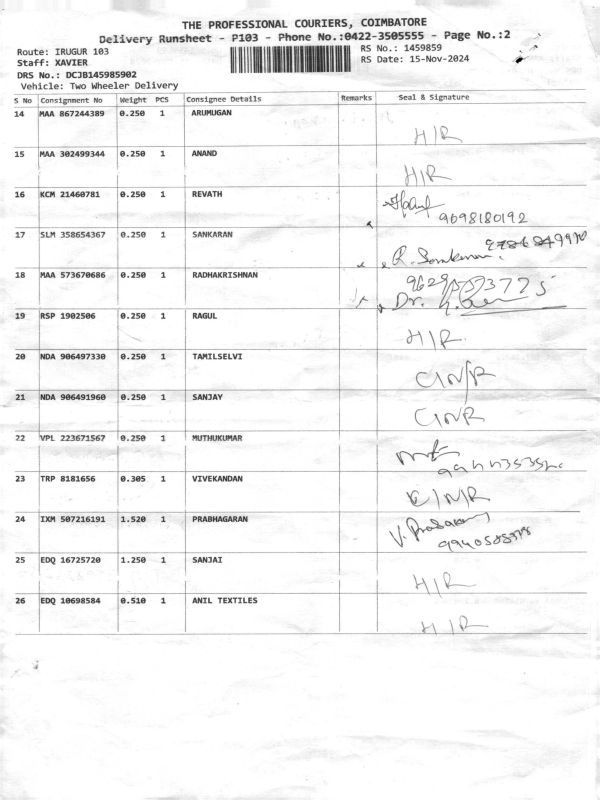 THE PROFESSIONAL COURIERS, COIMBATORE
Delivery Runsheet - P103 - Phone No.:0422-3505555 - Page No.:2
Route: IRUGUR 103
RS No.: 1459859
Staff: XAVIER
RS Date: 15-Nov-2024
DRS No.: DCJB145985902
Vehicle: Two Wheeler Delivery
S No Consignment No Weight PCS Consignee Details Remarks Seal & Signature
14 MAA 867244389 0.250 1 ARUMUGAN
H/R
15 MAA 302499344 0.250 1 ANAND
H/R
16 KCM 21460781 0.250 1 REVATH
9698180192
17 SLM 358654367 0.250 1 SANKARAN
R.
18 MAA 573670686 0.250 1 RADHAKRISHNAN
Dr.
19 RSP 1902506 0.250 1 RAGUL
H/R
20 NDA 906497330 0.250 1 TAMILSELVI
C/N/R
21 NDA 906491960 0.250 1 SANJAY
C/N/R
22 VPL 223671567 0.250 1 MUTHUKUMAR
23 TRP 8181656 0.305 1 VIVEKANDAN
C/N/R
24 IXM 507216191 1.520 1 PRABHAGARAN
V.
25 EDQ 16725720 1.250 1 SANJAI
H/R
26 EDQ 10698584 0.510 1 ANIL TEXTILES
H/R